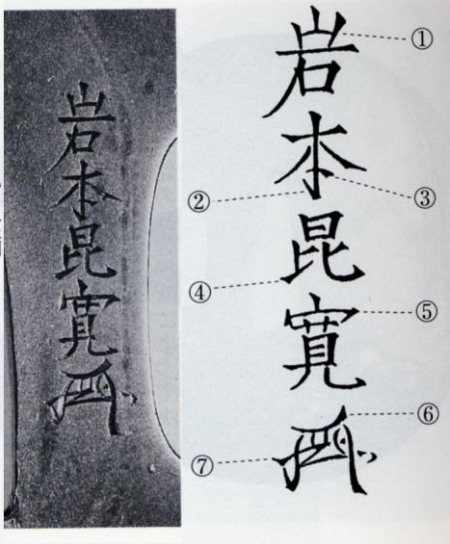 岩本昆寛
岩本昆寛
①
②
③
④
⑤
⑥
⑦